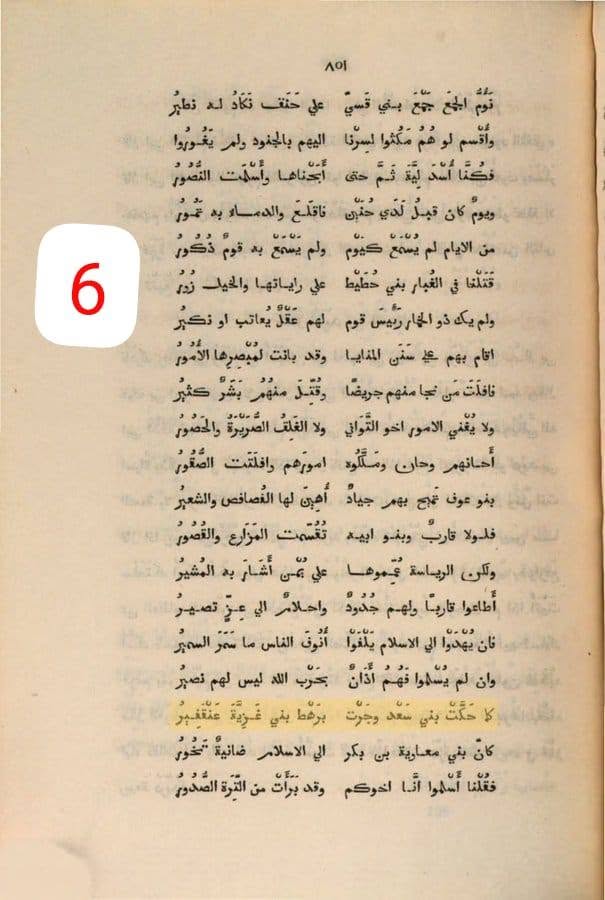 ٨٥١
نَوُمُّ الجمعَ جَمْعَ بني قَسيّ على حَنَف نَكَادُ له نطيرُ
وأُقْسم لو هُمُ مَكُثوا لسِرْنا اليهم بالجنود ولم يَغُوروا
فكُنَّا أُسْدَ لِيَّةَ ثَمَّ حتى أَبَحْناها وأُسْلمت النُّصُورُ
ويومٌ كان قبلُ لَدَى حُنَيْن فاقلعَ والدماء به تَمُورُ
من الايام لم يُسْمَعْ كيَوْم ولم يَسْمَعْ به قومٌ ذُكُورُ
قَتَلْنا في الغُبار بني حُطَيْط على راياتها والخيل زُورُ
ولم يك ذو الخمار رَئيسَ قوم لهم عَقْلٌ يُعاتب او نكيرُ
اقام بهم على سَنَن المنايا وقد بانت لمُبْصِرها الأُمُورُ
فافلتَ مَن نجا منهم جريضًا وقُتِّلَ منهُمُ بَشَرٌ كثيرُ
ولا يُغْنى الامور اخو التَّوَانى ولا الغَلِقُ الصَّرَيِّرَةُ والحَصُورُ
أَحانهم وحان ومَلَّكُوه امورَهم وافلَتَت الصُّقُورُ
بنو عوف تَميحُ بهم جيادٌ أُهِينَ لها الفَصافص والشعيرُ
فلولا قاربٌ وبنو ابيه تُقُسِّمت المَزَارع والقُصُورُ
ولكن الرياسة عُمِّموها على يُمْن أَشَارَ به المُشيرُ
أَطاعوا قاربًا ولهم جُدُودٌ واحلامٌ الى عِزٍّ تصيرُ
فان يُهْدَوْا الى الاسلام يُلْفَوْا أُنُوفَ الناس ما سَمَرَ السميرُ
وان لم يُسْلموا فَهُمُ أَذَانٌ بحَرْب الله ليس لهم نصيرُ
كما حَكَّتْ بني سَعْد وجَرَّتْ برَهْط بني غَزِيَّةَ عَنْقَفِيرُ
كانّ بني معاوية بن بكر الى الاسلام ضائنةٌ تَخُورُ
فقُلْنا أَسْلموا انَّا اخوكم وقد بَرَأَتْ من التِّرة الصُّدُورُ
6